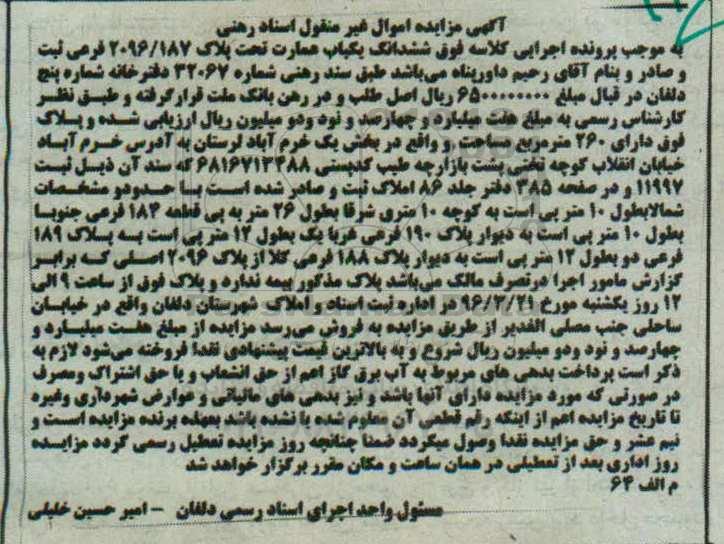 آگهی مزایده اموال غیر منقول اسناد رهنی
به موجب پرونده اجرایی کلاسه فوق ششدانگ یکباب عمارت تحت پلاک ۲۰۹۶/۱۸۷ فرعی ثبت
و صادر و بنام آقای رحیم داورپناه می‌باشد طبق سند رهنی شماره ۳۲۰۶۷ دفترخانه شماره پنج
دلفان در قبال مبلغ ۶۵۰۰۰۰۰۰۰۰ ریال اصل طلب و در رهن بانک ملت قرارگرفته و طبق نظر
کارشناس رسمی به مبلغ هفت میلیارد و چهارصد و نود ودو میلیون ریال ارزیابی شده و پلاک
فوق دارای ۲۶۰ مترمربع مساحت و واقع در بخش یک خرم آباد لرستان به آدرس خرم آباد
خیابان انقلاب کوچه تختی پشت بازارچه طیب کدپستی ۶۸۱۶۷۱۳۴۸۸ که سند آن ذیل ثبت
۱۱۹۹۷ و در صفحه ۳۸۵ دفتر جلد ۸۶ املاک ثبت و صادر شده است با حدودو مشخصات
شمالابطول ۱۰ متر پی است به کوچه ۱۰ متری شرقا بطول ۲۶ متر به پی قطعه ۱۸۴ فرعی جنوبا
بطول ۱۰ متر پی است به دیوار پلاک ۱۹۰ فرعی غربا یک بطول ۱۲ متر پی است به پلاک ۱۸۹
فرعی دو بطول ۱۲ متر پی است به دیوار پلاک ۱۸۸ فرعی کلا از پلاک ۲۰۹۶ اصلی که برابر
گزارش مامور اجرا درتصرف مالک می‌باشد پلاک مذکور بیمه ندارد و پلاک فوق از ساعت ۹ الی
۱۲ روز یکشنبه مورخ ۹۶/۳/۲۱ در اداره ثبت اسناد و املاک شهرستان دلفان واقع در خیابان
ساحلی جنب مصلی الغدیر از طریق مزایده به فروش می‌رسد مزایده از مبلغ هفت میلیارد و
چهارصد و نود ودو میلیون ریال شروع و به بالاترین قیمت پیشنهادی نقدا فروخته می‌شود لازم به
ذکر است پرداخت بدهی های مربوط به آب برق گاز اعم از حق انشعاب و یا حق اشتراک ومصرف
در صورتی که مورد مزایده دارای آنها باشد و نیز بدهی های مالیاتی و عوارض شهرداری وغیره
تا تاریخ مزایده اعم از اینکه رقم قطعی آن معلوم شده یا نشده باشد بعهده برنده مزایده است و
نیم عشر و حق مزایده نقدا وصول میگردد ضمنا چنانچه روز مزایده تعطیل رسمی گردد مزایده
روز اداری بعد از تعطیلی در همان ساعت و مکان مقرر برگزار خواهد شد
م الف ۶۴
مسئول واحد اجرای اسناد رسمی دلفان - امیر حسین خلیلی